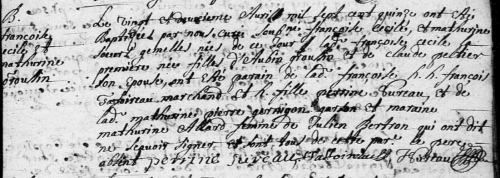 B.
françoise
cecile Et
mathurine
Groulin
Le vingt et deuxieme Avril mil sept cent quinze ont Eté
Baptisées par nous Curé soussigné françoise Cecile, et mathurine
soeurs gemelles nées de ce jour lad. françoise cecile la
premiere née filles d'Aubin groulin et de claude
son Epouse, ont Eté parain de lad. françoise h. h. françois
marchand et h. fille perrine Jureau, et de
lad. mathurine pierre garson et maraine
mathurine Allard femme de Julien Bertron qui ont dit
ne sçavoir signer et sont tous de cette par. Le pere
absent perrine Jureau